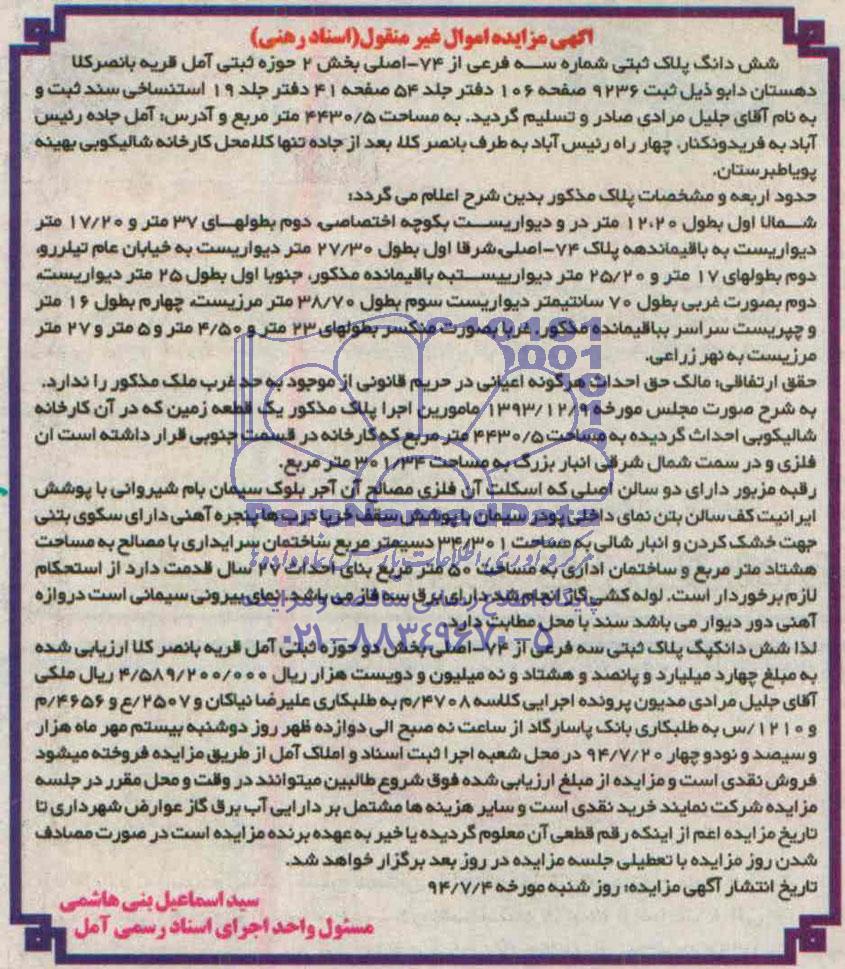 آگهی مزایده اموال غیر منقول(اسناد رهنی)
شش دانگ پلاک ثبتی شماره سه فرعی از ۷۴-اصلی بخش ۲ حوزه ثبتی آمل قریه بانصرکلا
دهستان دابو ذیل ثبت ۹۲۳۶ صفحه ۱۰۶ دفتر جلد ۵۴ صفحه ۴۱ دفتر جلد ۱۹ استنساخی سند ثبت و
به نام آقای جلیل مرادی صادر و تسلیم گردید. به مساحت ۴۴۳۰/۵ متر مربع و آدرس: آمل جاده رئیس
آباد به فریدونکنار، چهار راه رئیس آباد به طرف بانصر کلا، بعد از جاده تنها کلا،محل کارخانه شالیکوبی بهینه
پویاطبرستان.
حدود اربعه و مشخصات پلاک مذکور بدین شرح اعلام می گردد:
شمالا اول بطول ۱۲،۲۰ متر در و دیواریست بکوچه اختصاصی، دوم بطولهای ۳۷ متر و ۱۷/۲۰ متر
دیواریست به باقیماندهه پلاک ۷۴-اصلی،شرقا اول بطول ۲۷/۳۰ متر دیواریست به خیابان عام تیلررو،
دوم بطولهای ۱۷ متر و ۲۵/۲۰ متر دیوارییستبه باقیمانده مذکور، جنوبا اول بطول ۲۵ متر دیواریست،
دوم بصورت غربی بطول ۷۰ سانتیمتر دیواریست سوم بطول ۳۸/۷۰ متر مرزیست، چهارم بطول ۱۶ متر
و چپریست سراسر بباقیمانده مذکور. غربا بصورت منکسر بطولهای ۲۳ متر و ۴/۵۰ متر و ۵ متر و ۲۷ متر
مرزیست به نهر زراعی.
حقق ارتفاقی: مالک حق احداث هرگونه اعیانی در حریم قانونی از موجود به حد غرب ملک مذکور را ندارد.
به شرح صورت مجلس مورخه ۱۳۹۳/۱۲/۹ مامورین اجرا پلاک مذکور یک قطعه زمین که در آن کارخانه
شالیکوبی احداث گردیده به مساحت ۴۴۳۰/۵ متر مربع که کارخانه در قسمت جنوبی قرار داشته است ان
فلزی و در سمت شمال شرقی انبار بزرگ به مساحت ۳۰۱/۳۴ متر مربع.
رقبه مزبور دارای دو سالن اصلی که اسکلت آن فلزی مصالح آن آجر بلوک سیمان بام شیروانی با پوشش
ایرانیت کف سالن بتن نمای داخلی پودر سیمان با پوشش سقف خرپا درب ها پنجره آهنی دارای سکوی بتنی
جهت خشک کردن و انبار شالی به مساحت ۳۴/۳۰۱ دسیمتر مربع ساختمان سرایداری با مصالح به مساحت
هشتاد متر مربع و ساختمان اداری به مساحت ۵۰ متر مربع بنای احداث ۲۷ سال قدمت دارد از استحکام
لازم برخوردار است. لوله کشی گاز انجام شد دارای برق سه فاز می باشد. نمای بیرونی سیمانی است دروازه
آهنی دور دیوار می باشد سند با محل مطابت دارد.
لذا شش دانکپگ پلاک ثبتی سه فرعی از ۷۴-اصلی بخش دو حوزه ثبتی آمل قریه بانصر کلا ارزیابی شده
به مبلغ چهارد میلیارد و پانصد و هشتاد و نه میلیون و دویست هزار ریال ۴/۵۸۹/۲۰۰/۰۰۰ ریال ملکی
آقای جلیل مرادی مدیون پرونده اجرایی کلاسه ۴۷۰۸/م به طلبکاری علیرضا نیاکان و ۲۵۰۷/ع و ۴۶۵۶/م
و ۱۲۱۰/س به طلبکاری بانک پاسارگاد از ساعت نه صبح الی دوازده ظهر روز دوشنبه بیستم مهر ماه هزار
و سیصد و نودو چهار ۹۴/۷/۲۰ در محل شعبه اجرا ثبت اسناد و املاک آمل از طریق مزایده فروخته میشود
فروش نقدی است و مزایده از مبلغ ارزیابی شده فوق شروع طالبین میتوانند در وقت و محل مقرر در جلسه
مزایده شرکت نمایند خرید نقدی است و سایر هزینه ها مشتمل بر دارایی آب برق گاز عوارض شهرداری تا
تاریخ مزایده اعم از اینکه رقم قطعی آن معلوم گردیده یا خیر به عهده برنده مزایده است در صورت مصادف
شدن روز مزایده با تعطیلی جلسه مزایده در روز بعد برگزار خواهد شد.
تاریخ انتشار آگهی مزایده: روز شنبه مورخه ۹۴/۷/۴
سید اسماعیل بنی هاشمی
مسئول واحد اجرای اسناد رسمی آمل
پایگاه اطلاع رسانی مناقصه و مزایده
۰۲۱-۸۸۳۴۹۶۷۰-۵